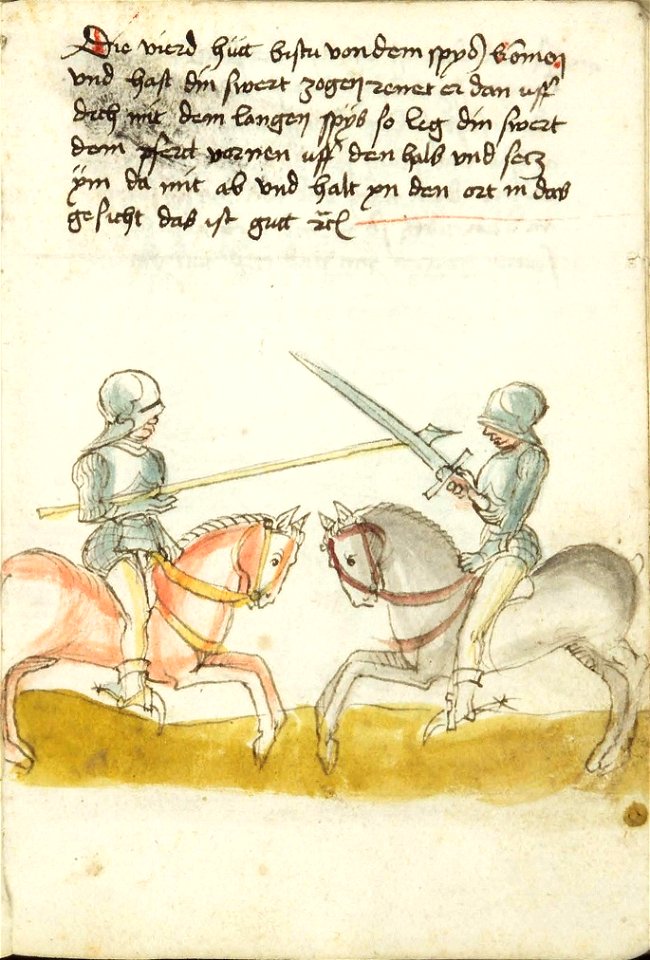 Die vierd hütt bistu von dem spyß komen
vnd hast din swert zogen rennet er dan uff
dich mit dem langen spyß so leg din swert
dem pfert vornen uff den hals vnd setz
ym da mit ab vnd halt yn den ort in das
gesicht das ist gutt